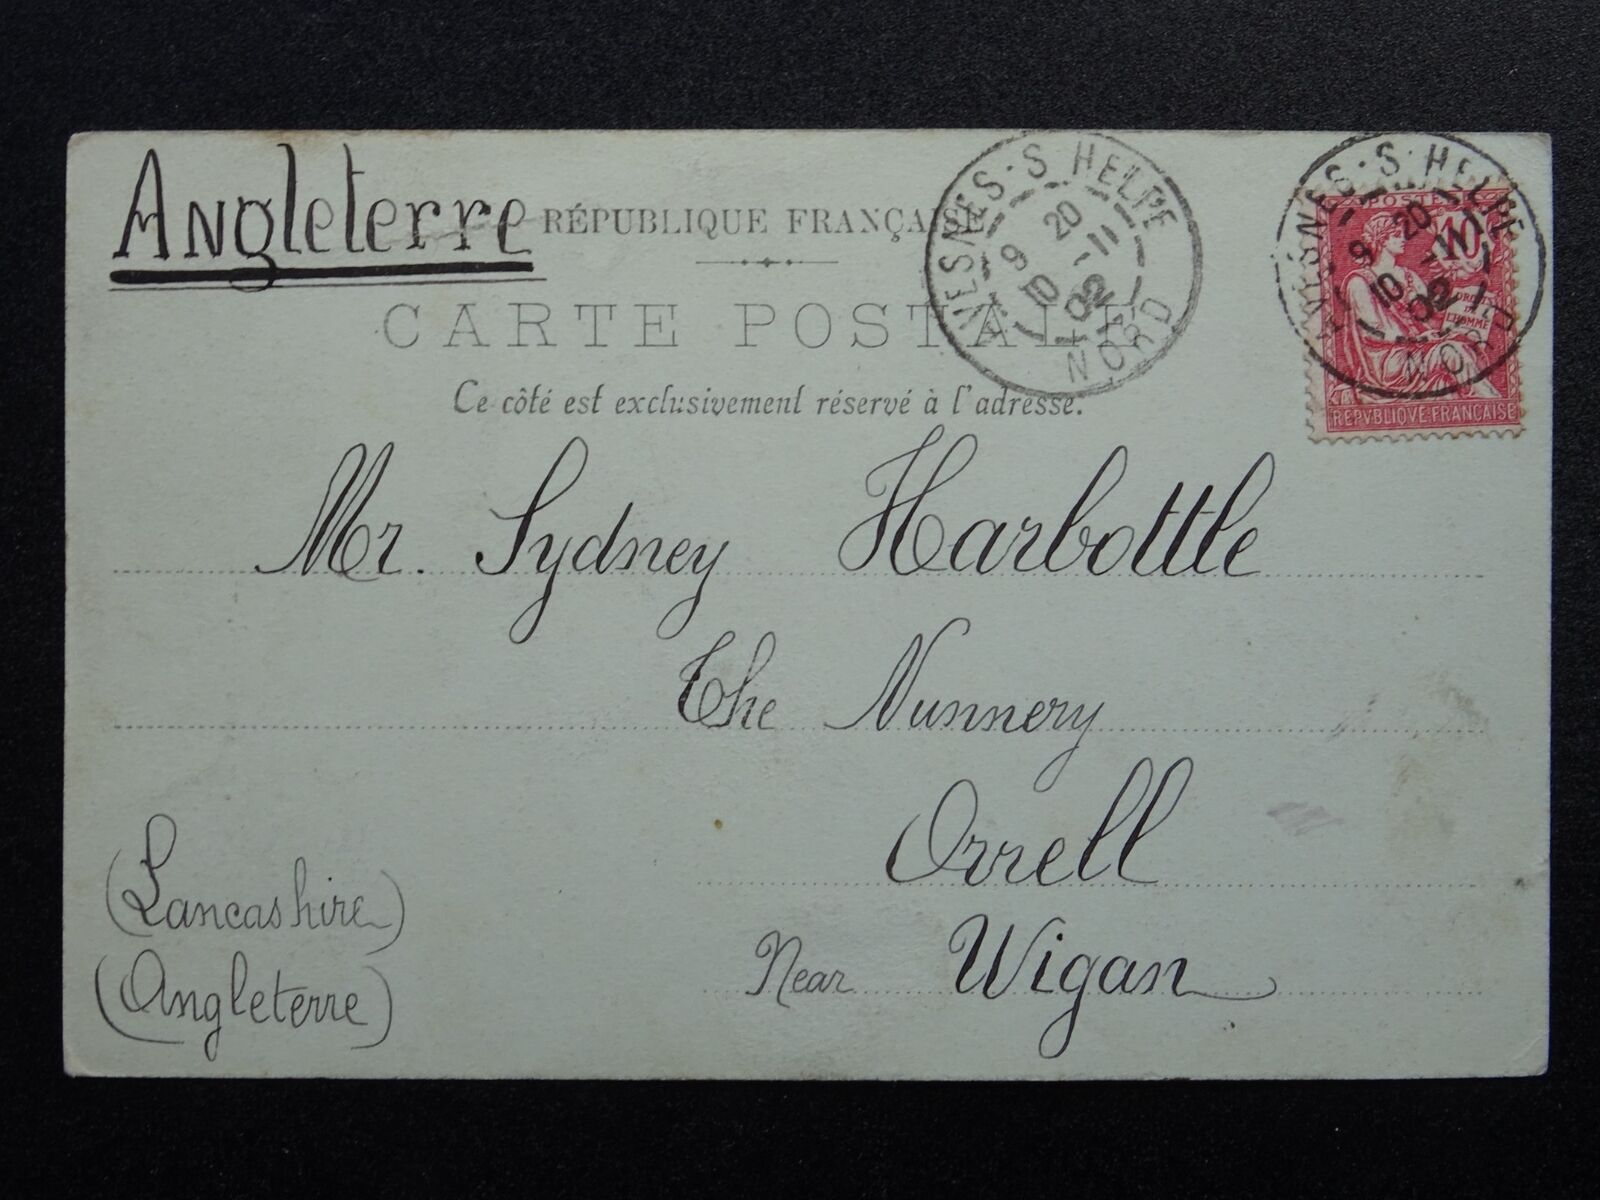 Angleterre
RÉPUBLIQUE FRANÇAISE
CARTE POSTALE
Ce côté est exclusivement réservé à l'adresse.
AVESNES·S·HELPE
9 20
10 -11
02
NORD
AVESNES·S·HELPE
9 20
10 -11
02
NORD
POSTES
10
DROITS
DE
L'HOMME
REPVBLIQVE·FRANÇAISE
Mr. Sydney Harbottle
The Nunnery
Orrell
Near Wigan
(Lancashire)
(Angleterre)